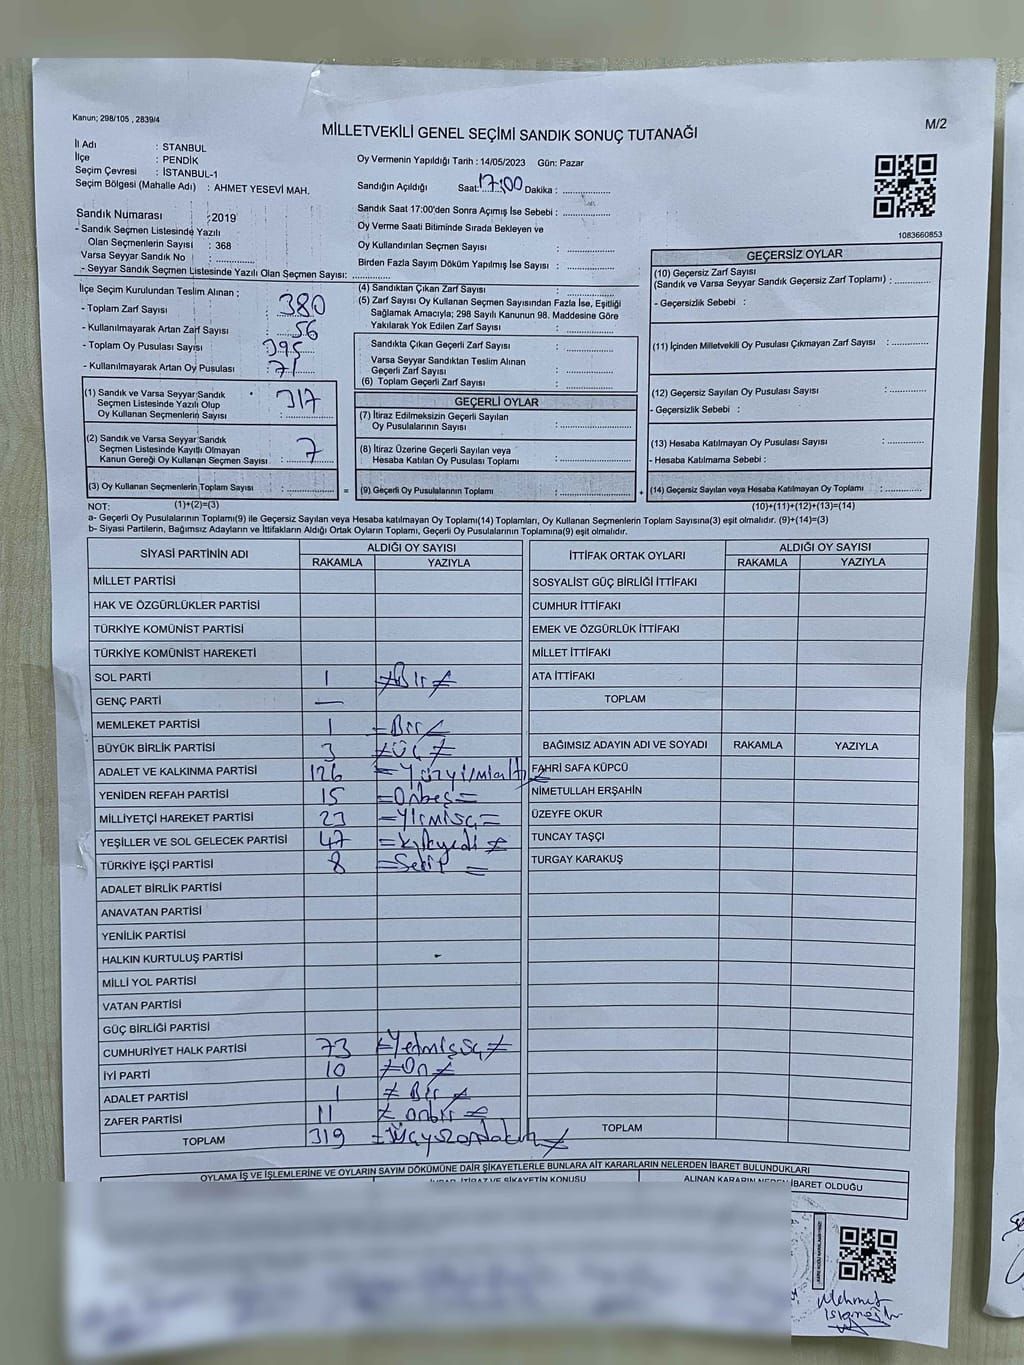 Kanun; 298/105 , 2839/4
MİLLETVEKİLİ GENEL SEÇİMİ SANDIK SONUÇ TUTANAĞI
M/2
İl Adı : STANBUL
İlçe : PENDİK
Seçim Çevresi : İSTANBUL-1
Seçim Bölgesi (Mahalle Adı) : AHMET YESEVİ MAH.
Sandık Numarası : 2019
- Sandık Seçmen Listesinde Yazılı
Olan Seçmenlerin Sayısı : 368
Varsa Seyyar Sandık No : ..............
- Seyyar Sandık Seçmen Listesinde Yazılı Olan Seçmen Sayısı: ..............
Oy Vermenin Yapıldığı Tarih : 14/05/2023 Gün: Pazar
Sandığın Açıldığı Saat: 17:00 Dakika : ..............
Sandık Saat 17:00'den Sonra Açımış İse Sebebi : ..............
Oy Verme Saati Bitiminde Sırada Bekleyen ve
Oy Kullandırılan Seçmen Sayısı : ..............
Birden Fazla Sayım Döküm Yapılmış İse Sayısı : ..............
1083660853
İlçe Seçim Kurulundan Teslim Alınan ;
- Toplam Zarf Sayısı : 380
- Kullanılmayarak Artan Zarf Sayısı : 56
- Toplam Oy Pusulası Sayısı : 395
- Kullanılmayarak Artan Oy Pusulası : 71
(1) Sandık ve Varsa Seyyar Sandık
Seçmen Listesinde Yazılı Olup
Oy Kullanan Seçmenlerin Sayısı : 317
(2) Sandık ve Varsa Seyyar Sandık
Seçmen Listesinde Kayıtlı Olmayan
Kanun Gereği Oy Kullanan Seçmen Sayısı : 7
(3) Oy Kullanan Seçmenlerin Toplam Sayısı : ..............
(1)+(2)=(3)
(4) Sandıktan Çıkan Zarf Sayısı : ..............
(5) Zarf Sayısı Oy Kullanan Seçmen Sayısından Fazla İse, Eşitliği
Sağlamak Amacıyla; 298 Sayılı Kanunun 98. Maddesine Göre
Yakılarak Yok Edilen Zarf Sayısı : ..............
Sandıkta Çıkan Geçerli Zarf Sayısı : ..............
Varsa Seyyar Sandıktan Teslim Alınan
Geçerli Zarf Sayısı : ..............
(6) Toplam Geçerli Zarf Sayısı : ..............
GEÇERLİ OYLAR
(7) İtiraz Edilmeksizin Geçerli Sayılan
Oy Pusulalarının Sayısı : ..............
(8) İtiraz Üzerine Geçerli Sayılan veya
Hesaba Katılan Oy Pusulası Toplamı : ..............
= (9) Geçerli Oy Pusulalarının Toplamı : ..............
GEÇERSİZ OYLAR
(10) Geçersiz Zarf Sayısı
(Sandık ve Varsa Seyyar Sandık Geçersiz Zarf Toplamı) : ..............
- Geçersizlik Sebebi :
(11) İçinden Milletvekili Oy Pusulası Çıkmayan Zarf Sayısı : ..............
(12) Geçersiz Sayılan Oy Pusulası Sayısı : ..............
- Geçersizlik Sebebi :
(13) Hesaba Katılmayan Oy Pusulası Sayısı : ..............
- Hesaba Katılmama Sebebi :
+ (14) Geçersiz Sayılan veya Hesaba Katılmayan Oy Toplamı : ..............
(10)+(11)+(12)+(13)=(14)
NOT:
a- Geçerli Oy Pusulalarının Toplamı(9) ile Geçersiz Sayılan veya Hesaba Katılmayan Oy Toplamı(14) Toplamları, Oy Kullanan Seçmenlerin Toplam Sayısına(3) eşit olmalıdır. (9)+(14)=(3)
b- Siyasi Partilerin, Bağımsız Adayların ve İttifakların Aldığı Ortak Oyların Toplamı, Geçerli Oy Pusulalarının Toplamına(9) eşit olmalıdır.
SİYASİ PARTİNİN ADI ALDIĞI OY SAYISI
RAKAMLA YAZIYLA
MİLLET PARTİSİ
HAK VE ÖZGÜRLÜKLER PARTİSİ
TÜRKİYE KOMÜNİST PARTİSİ
TÜRKİYE KOMÜNİST HAREKETİ
SOL PARTİ 1 ≠Bir≠
GENÇ PARTİ —
MEMLEKET PARTİSİ 1 =Bir≠
BÜYÜK BİRLİK PARTİSİ 3 ≠Üç≠
ADALET VE KALKINMA PARTİSİ 126 =Yüzyirmialtı=
YENİDEN REFAH PARTİSİ 15 =Onbeş=
MİLLİYETÇİ HAREKET PARTİSİ 23 =Yirmiüç=
YEŞİLLER VE SOL GELECEK PARTİSİ 47 =Kırkyedi≠
TÜRKİYE İŞÇİ PARTİSİ 8 =Sekiz=
ADALET BİRLİK PARTİSİ
ANAVATAN PARTİSİ
YENİLİK PARTİSİ
HALKIN KURTULUŞ PARTİSİ
MİLLİ YOL PARTİSİ
VATAN PARTİSİ
GÜÇ BİRLİĞİ PARTİSİ
CUMHURİYET HALK PARTİSİ 73 ≠Yetmişüç≠
İYİ PARTİ 10 ≠On≠
ADALET PARTİSİ 1 ≠Bir≠
ZAFER PARTİSİ 11 ≠onbir≠
TOPLAM 319 =Üçyüzondokuz≠
İTTİFAK ORTAK OYLARI ALDIĞI OY SAYISI
RAKAMLA YAZIYLA
SOSYALİST GÜÇ BİRLİĞİ İTTİFAKI
CUMHUR İTTİFAKI
EMEK VE ÖZGÜRLÜK İTTİFAKI
MİLLET İTTİFAKI
ATA İTTİFAKI
TOPLAM
BAĞIMSIZ ADAYIN ADI VE SOYADI RAKAMLA YAZIYLA
FAHRİ SAFA KÜPCÜ
NİMETULLAH ERŞAHİN
ÜZEYFE OKUR
TUNCAY TAŞÇI
TURGAY KARAKUŞ
TOPLAM
OYLAMA İŞ VE İŞLEMLERİNE VE OYLARIN SAYIM DÖKÜMÜNE DAİR ŞİKAYETLERLE BUNLARA AİT KARARLARIN NELERDEN İBARET BULUNDUKLARI
İTİRAZ VE ŞİKAYETİN KONUSU
ALINAN KARARIN NEDEN İBARET OLDUĞU
Mehmet